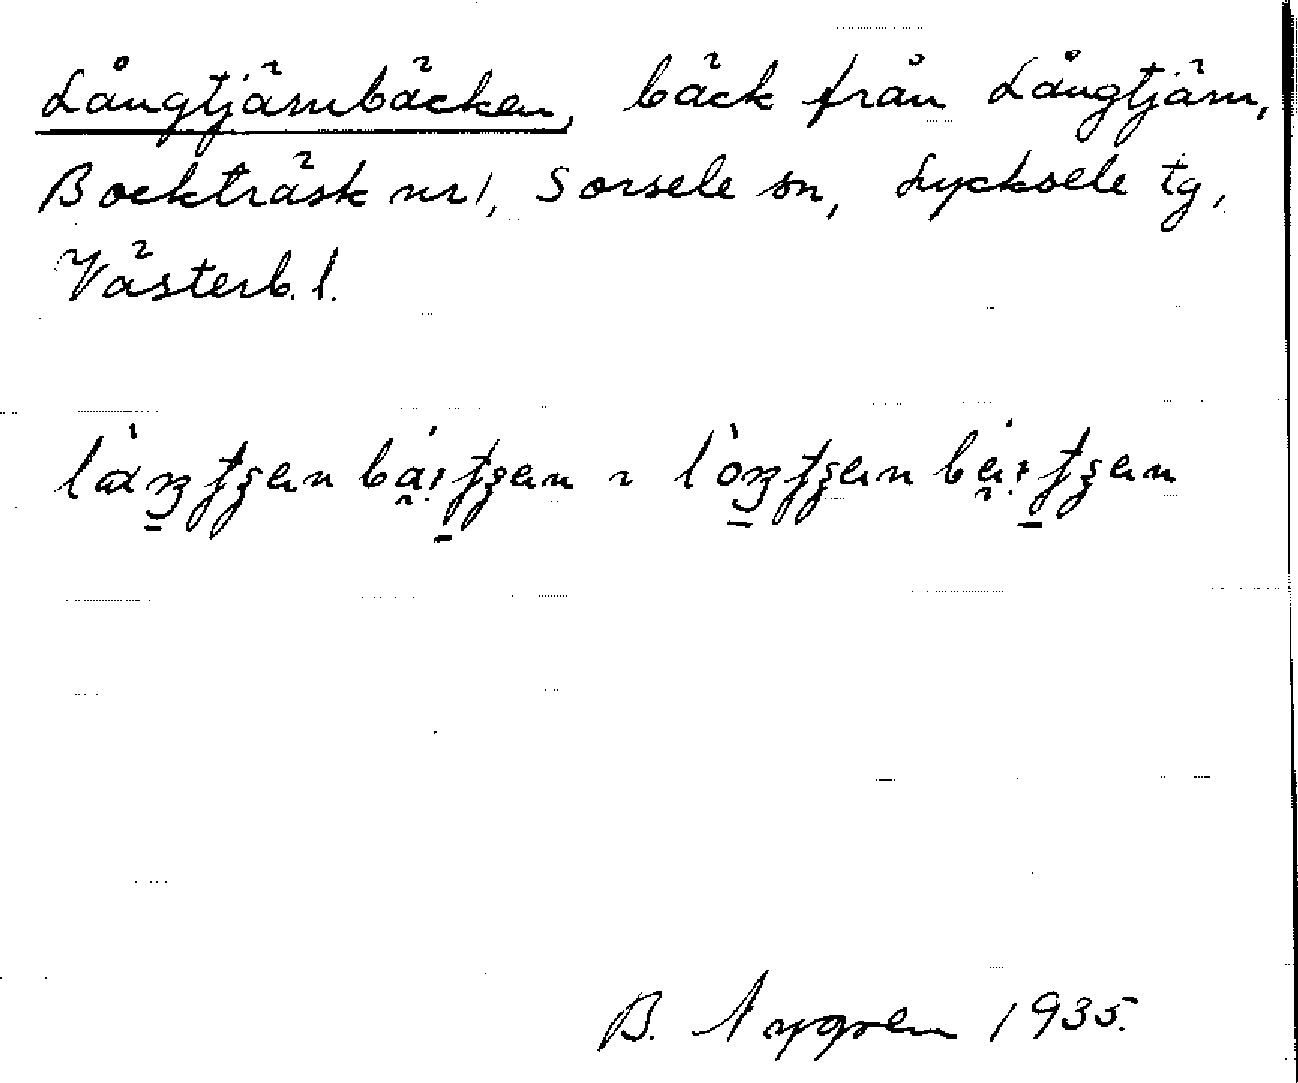 Långtjärnbäcken, bäck från Långtjärn,
Bockträsk nr 1, Sorsele sn, Lycksele tg,
Västerb. l.
B. Nygren 1935.